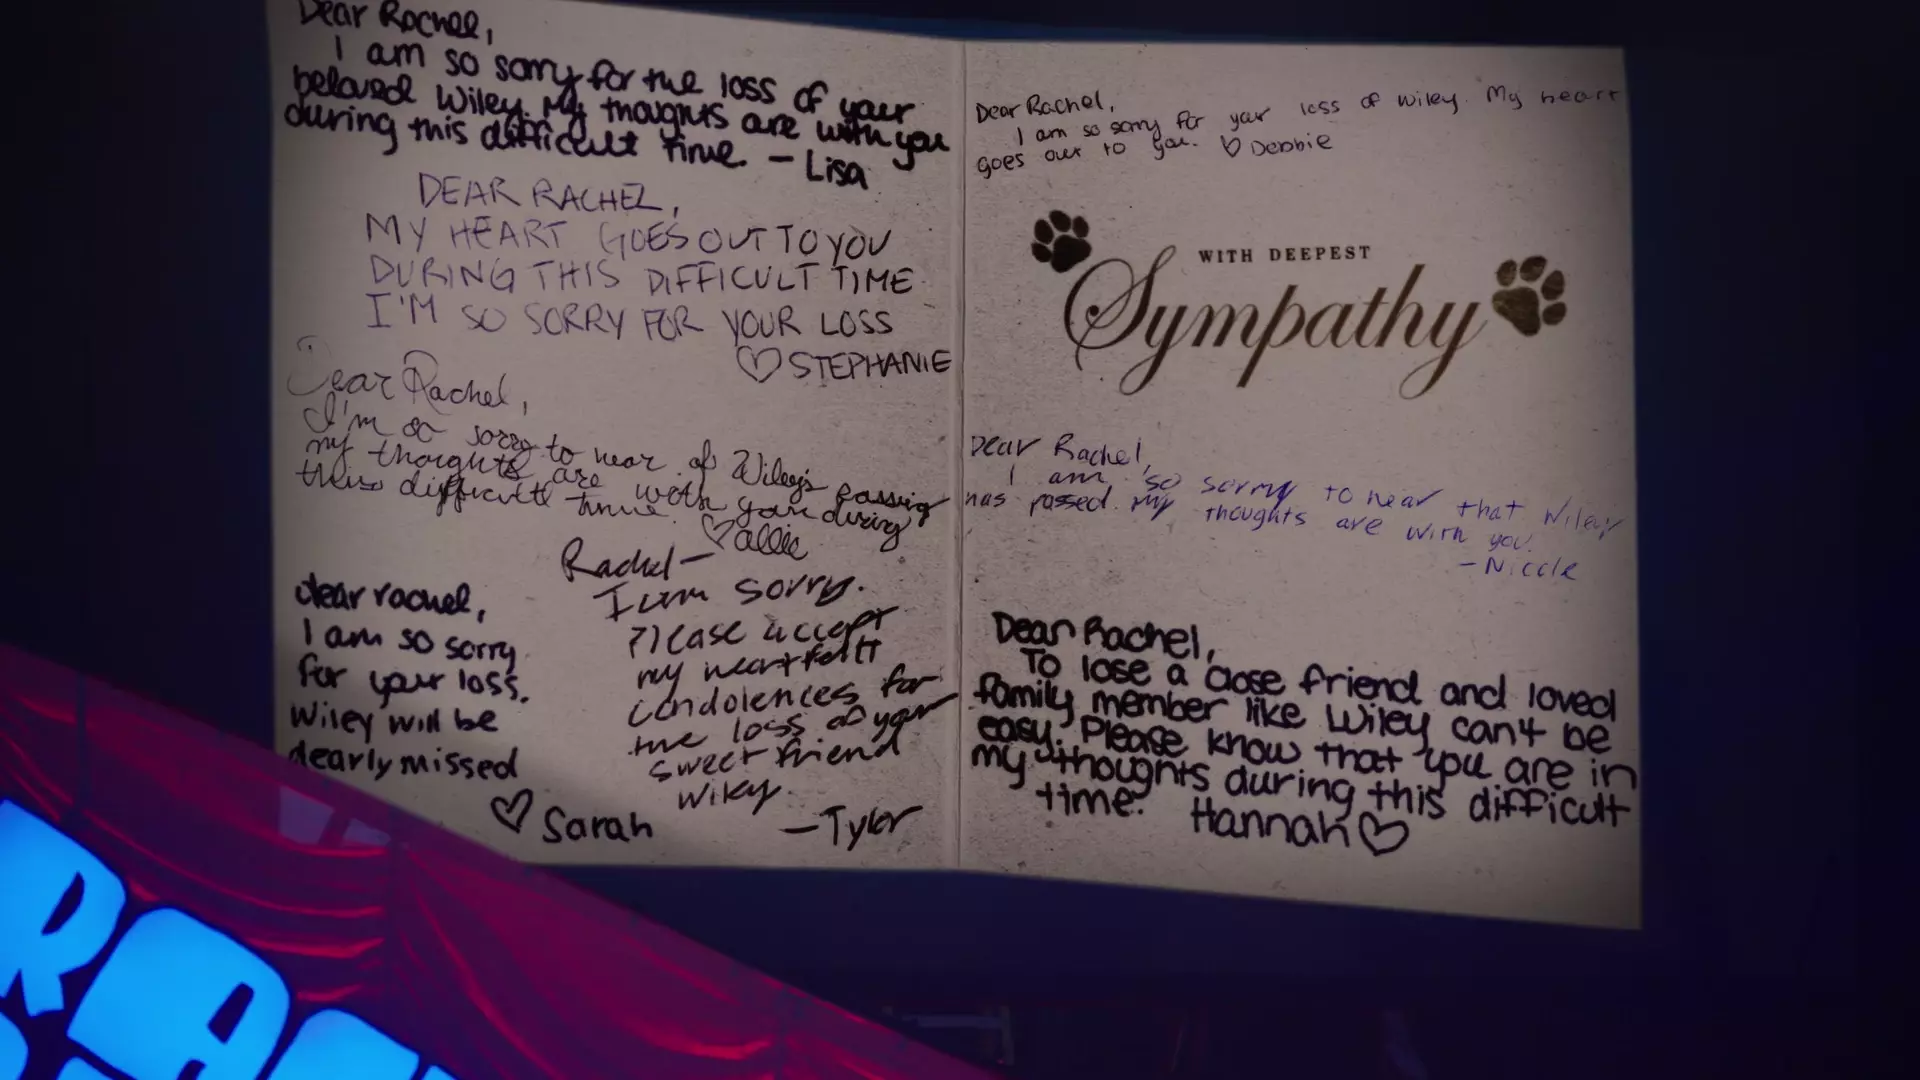 Dear Rachel,
I am so sorry for the loss of your
beloved Wiley. My thoughts are with you
during this difficult time. - Lisa
DEAR RACHEL,
MY HEART GOES OUT TO YOU
DURING THIS DIFFICULT TIME
I'M SO SORRY FOR YOUR LOSS
♡ STEPHANIE
Dear Rachel,
I'm so sorry to hear of Wiley's passing
my thoughts are with you during
this difficult time.
♡ allie
dear rachel,
I am so sorry
for your loss.
Wiley will be
dearly missed
♡ Sarah
Rachel —
I am sorry.
Please accept
my heartfelt
condolences for
the loss of your
sweet friend
Wiley.
— Tyler
Dear Rachel,
I am so sorry for your loss of Wiley. My heart
goes out to you. ♡ Debbie
WITH DEEPEST
Sympathy
Dear Rachel,
I am so sorry to hear that Wiley
has passed. My thoughts are with you.
- Nicole
Dear Rachel,
To lose a close friend and loved
family member like Wiley can't be
easy. Please know that you are in
my thoughts during this difficult
time. Hannah ♡